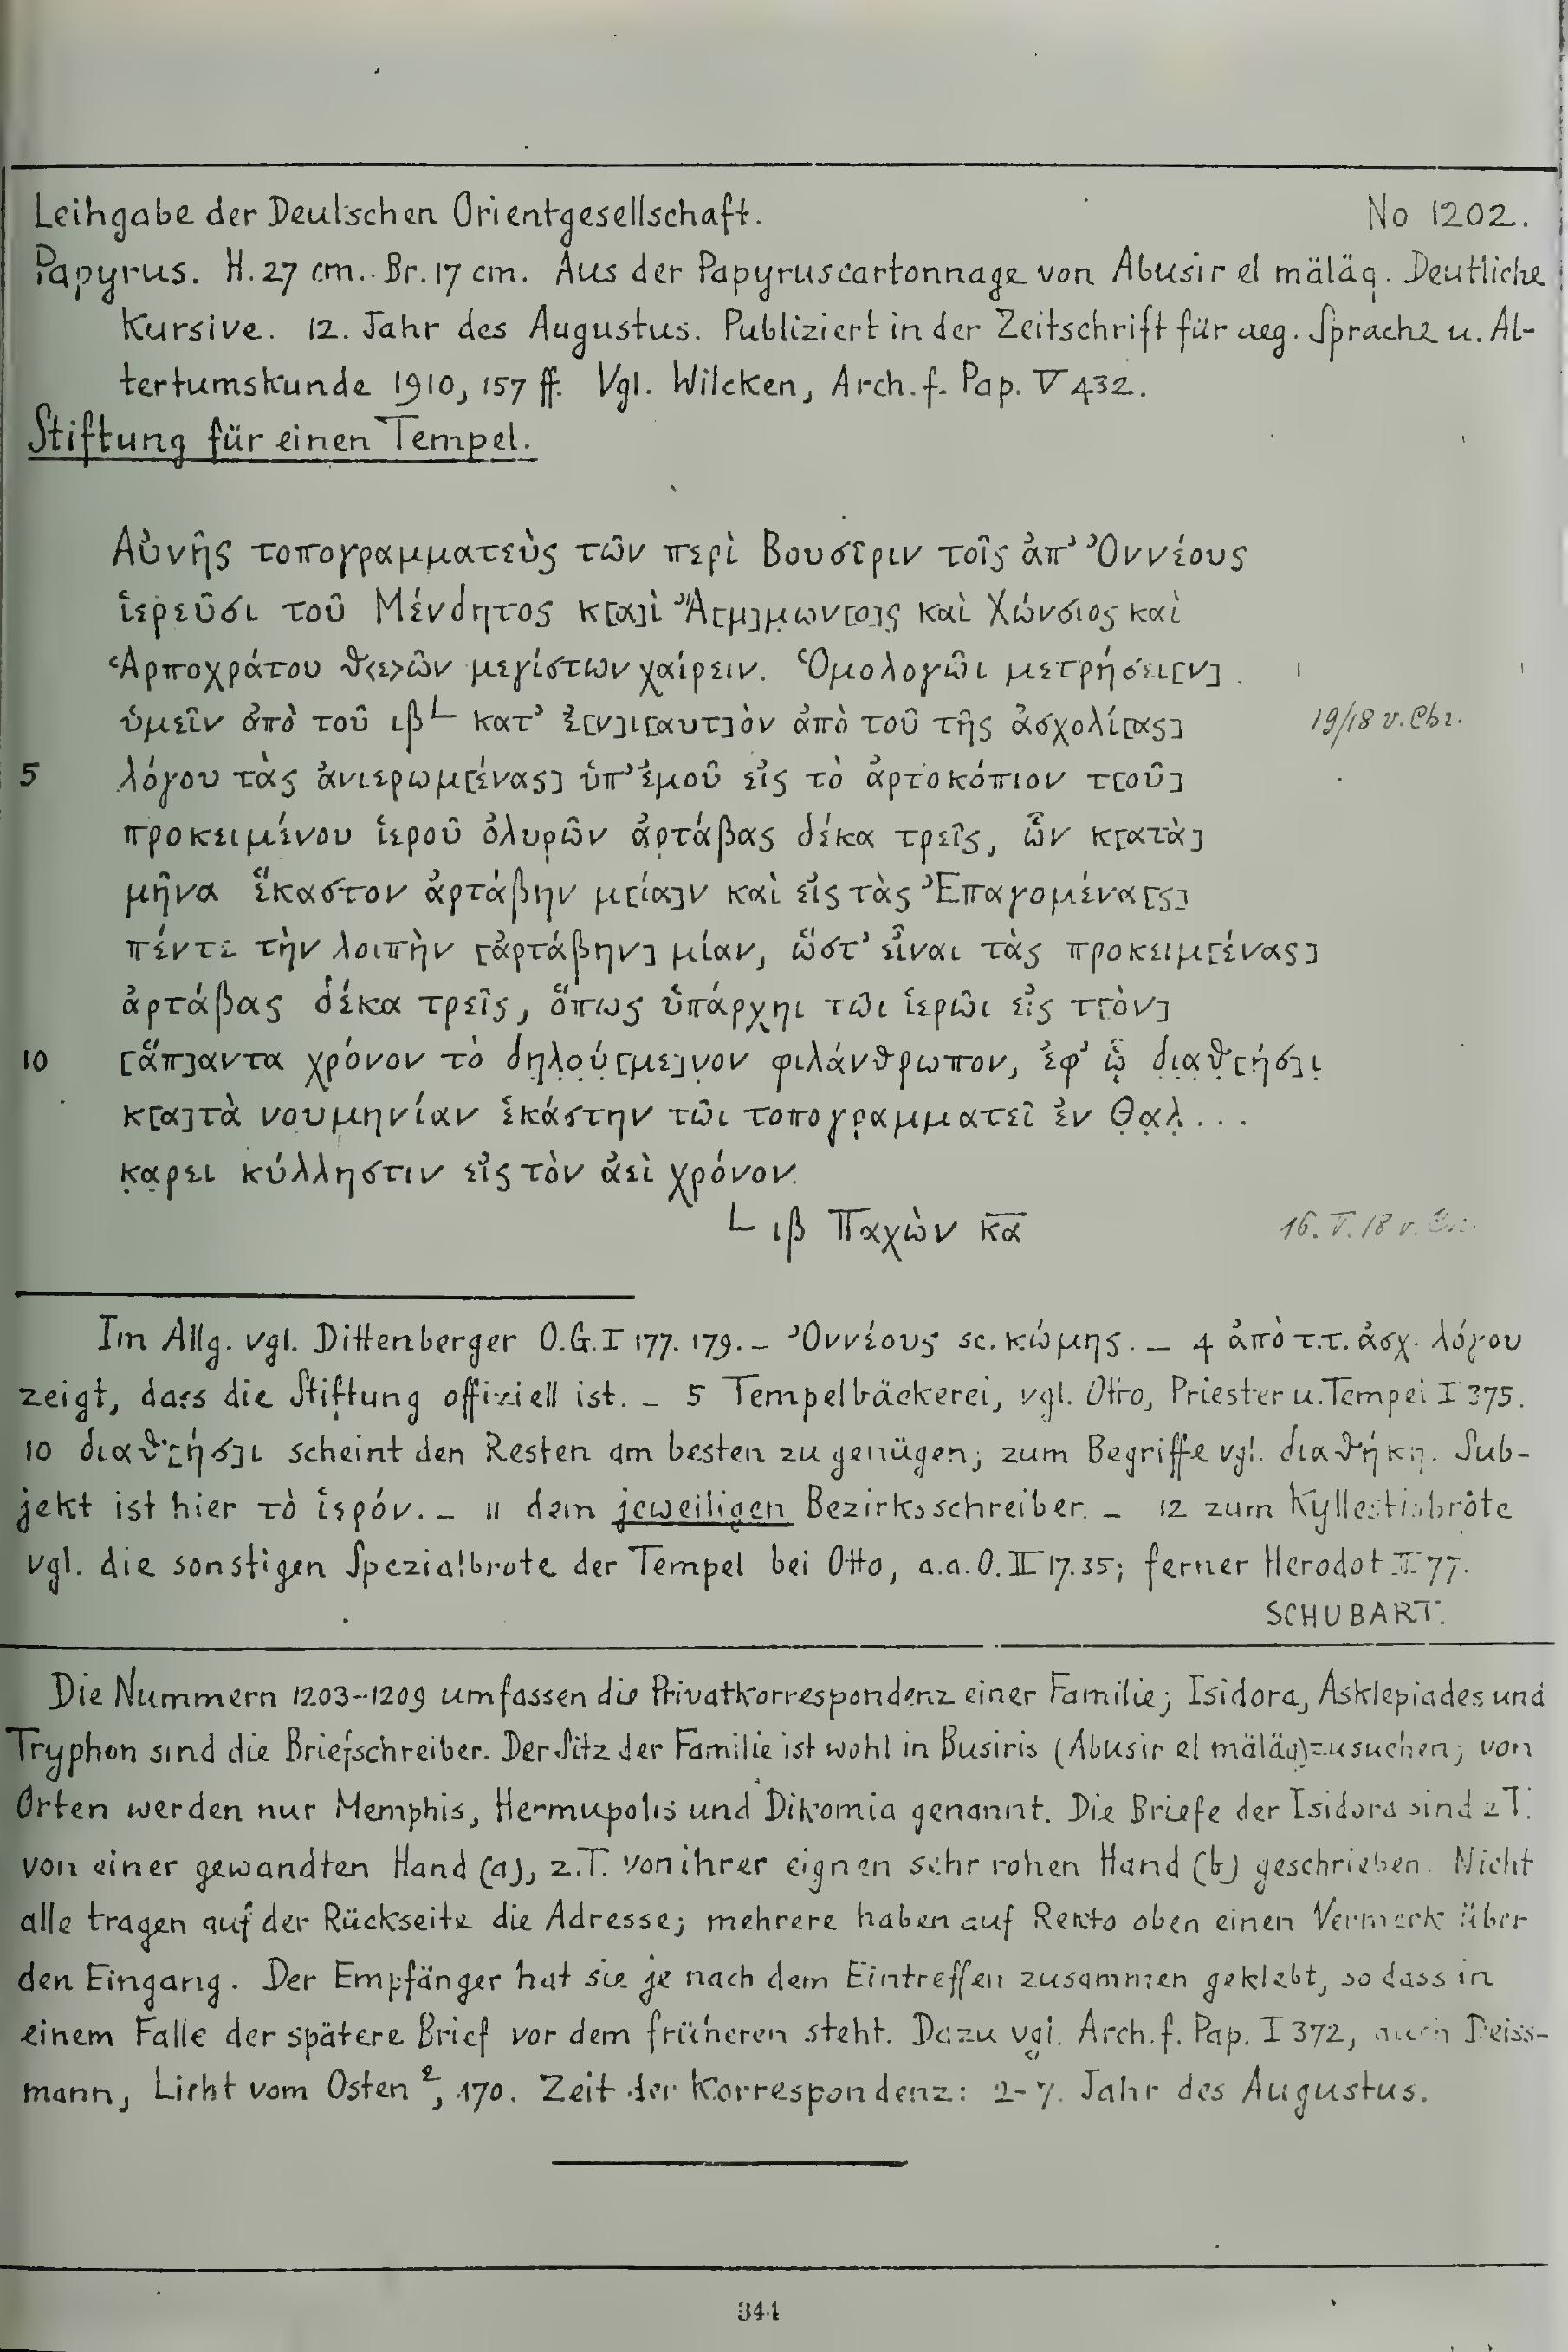 Leihgabe der Deutschen Orientgesellschaft. No 1202.
Papyrus. H. 27 cm. Br. 17 cm. Aus der Papyruscartonnage von Abusir el mäläq. Deutliche
Kursive. 12. Jahr des Augustus. Publiziert in der Zeitschrift für aeg. Sprache u. Al-
tertumskunde 1910, 157 ff. Vgl. Wilcken, Arch. f. Pap. V 432.
Stiftung für einen Tempel.
Αὐνῆς τοπογραμματεὺς τῶν περὶ Βουσῖριν τοῖς ἀπ' Ὀννέους
ἱερεῦσι τοῦ Μένδητος κ[α]ὶ Ἄ[μ]μ̣ων[ο]ς̣ καὶ Χώνσιος καὶ
Ἁρποχράτου θ<ε>ῶν μεγίστων χαίρειν. Ὁμολογῶι μετρήσει[ν]
ὑμεῖν ἀπὸ τοῦ ιβ L κατ' ἐ̣[ν]ι[αυτ]ὸν ἀπὸ τοῦ τῆς ἀσχολί[ας] 19/18 v. Chr.
5 λόγου τὰς ἀνιερωμ[ένας] ὑπ' ἐμοῦ εἰς τὸ ἀρτοκόπιον τ[οῦ]
προκειμένου ἱεροῦ ὀλυρῶν ἀρτάβας δέκα τρεῖς, ὧν κ[ατὰ]
μῆνα ἕκαστον ἀρτάβην μ[ία]ν καὶ εἰς τὰς Ἐπαγομένα[ς]
πέντε τὴν λοιπὴν [ἀρτάβην] μίαν, ὥστ' εἶναι τὰς προκειμ[ένας]
ἀρτάβας δέκα τρεῖς, ὅπως ὑπάρχηι τῶι ἱερῶι εἰς τ[ὸν]
10 [ἅπ]αντα χρόνον τὸ δηλ̣ο̣ύ̣[με]ν̣ον φιλάνθρωπον, ἐφ' ᾧ̣ δ̣ι̣α̣θ̣[ήσ]ι̣
κ[α]τὰ νουμηνίαν ἑκάστην τῶι τοπογραμματεῖ ἐν Θ̣α̣λ̣...
κ̣α̣ρει κύλληστιν εἰς τὸν ἀεὶ χρόνον.
L ιβ Παχὼν κ̅α̅ 16. V. 18 v. Chr.
Im Allg. vgl. Dittenberger O.G.I 177. 179. – Ὀννέους sc. κώμης. – 4 ἀπὸ τ.τ. ἀσχ. λόγου
zeigt, dass die Stiftung offiziell ist. – 5 Tempelbäckerei, vgl. Otto, Priester u. Tempel I 375.
10 διαθ[ήσ]ι scheint den Resten am besten zu genügen; zum Begriffe vgl. διαθήκη. Sub-
jekt ist hier τὸ ἱερόν. – 11 dem jeweiligen Bezirksschreiber. – 12 zum Kyllestisbrote
vgl. die sonstigen Spezialbrote der Tempel bei Otto, a.a.O. II 17. 35; ferner Herodot II 77.
SCHUBART.
Die Nummern 1203–1209 umfassen die Privatkorrespondenz einer Familie; Isidora, Asklepiades und
Tryphon sind die Briefschreiber. Der Sitz der Familie ist wohl in Busiris (Abusir el mäläq) zu suchen; von
Orten werden nur Memphis, Hermupolis und Dikomia genannt. Die Briefe der Isidora sind z.T.
von einer gewandten Hand (a), z.T. von ihrer eignen sehr rohen Hand (b) geschrieben. Nicht
alle tragen auf der Rückseite die Adresse; mehrere haben auf Rekto oben einen Vermerk über
den Eingang. Der Empfänger hat sie je nach dem Eintreffen zusammen geklebt, so dass in
einem Falle der spätere Brief vor dem früheren steht. Dazu vgl. Arch. f. Pap. I 372, auch Deiss-
mann, Licht vom Osten², 170. Zeit der Korrespondenz: 2–7. Jahr des Augustus.
341